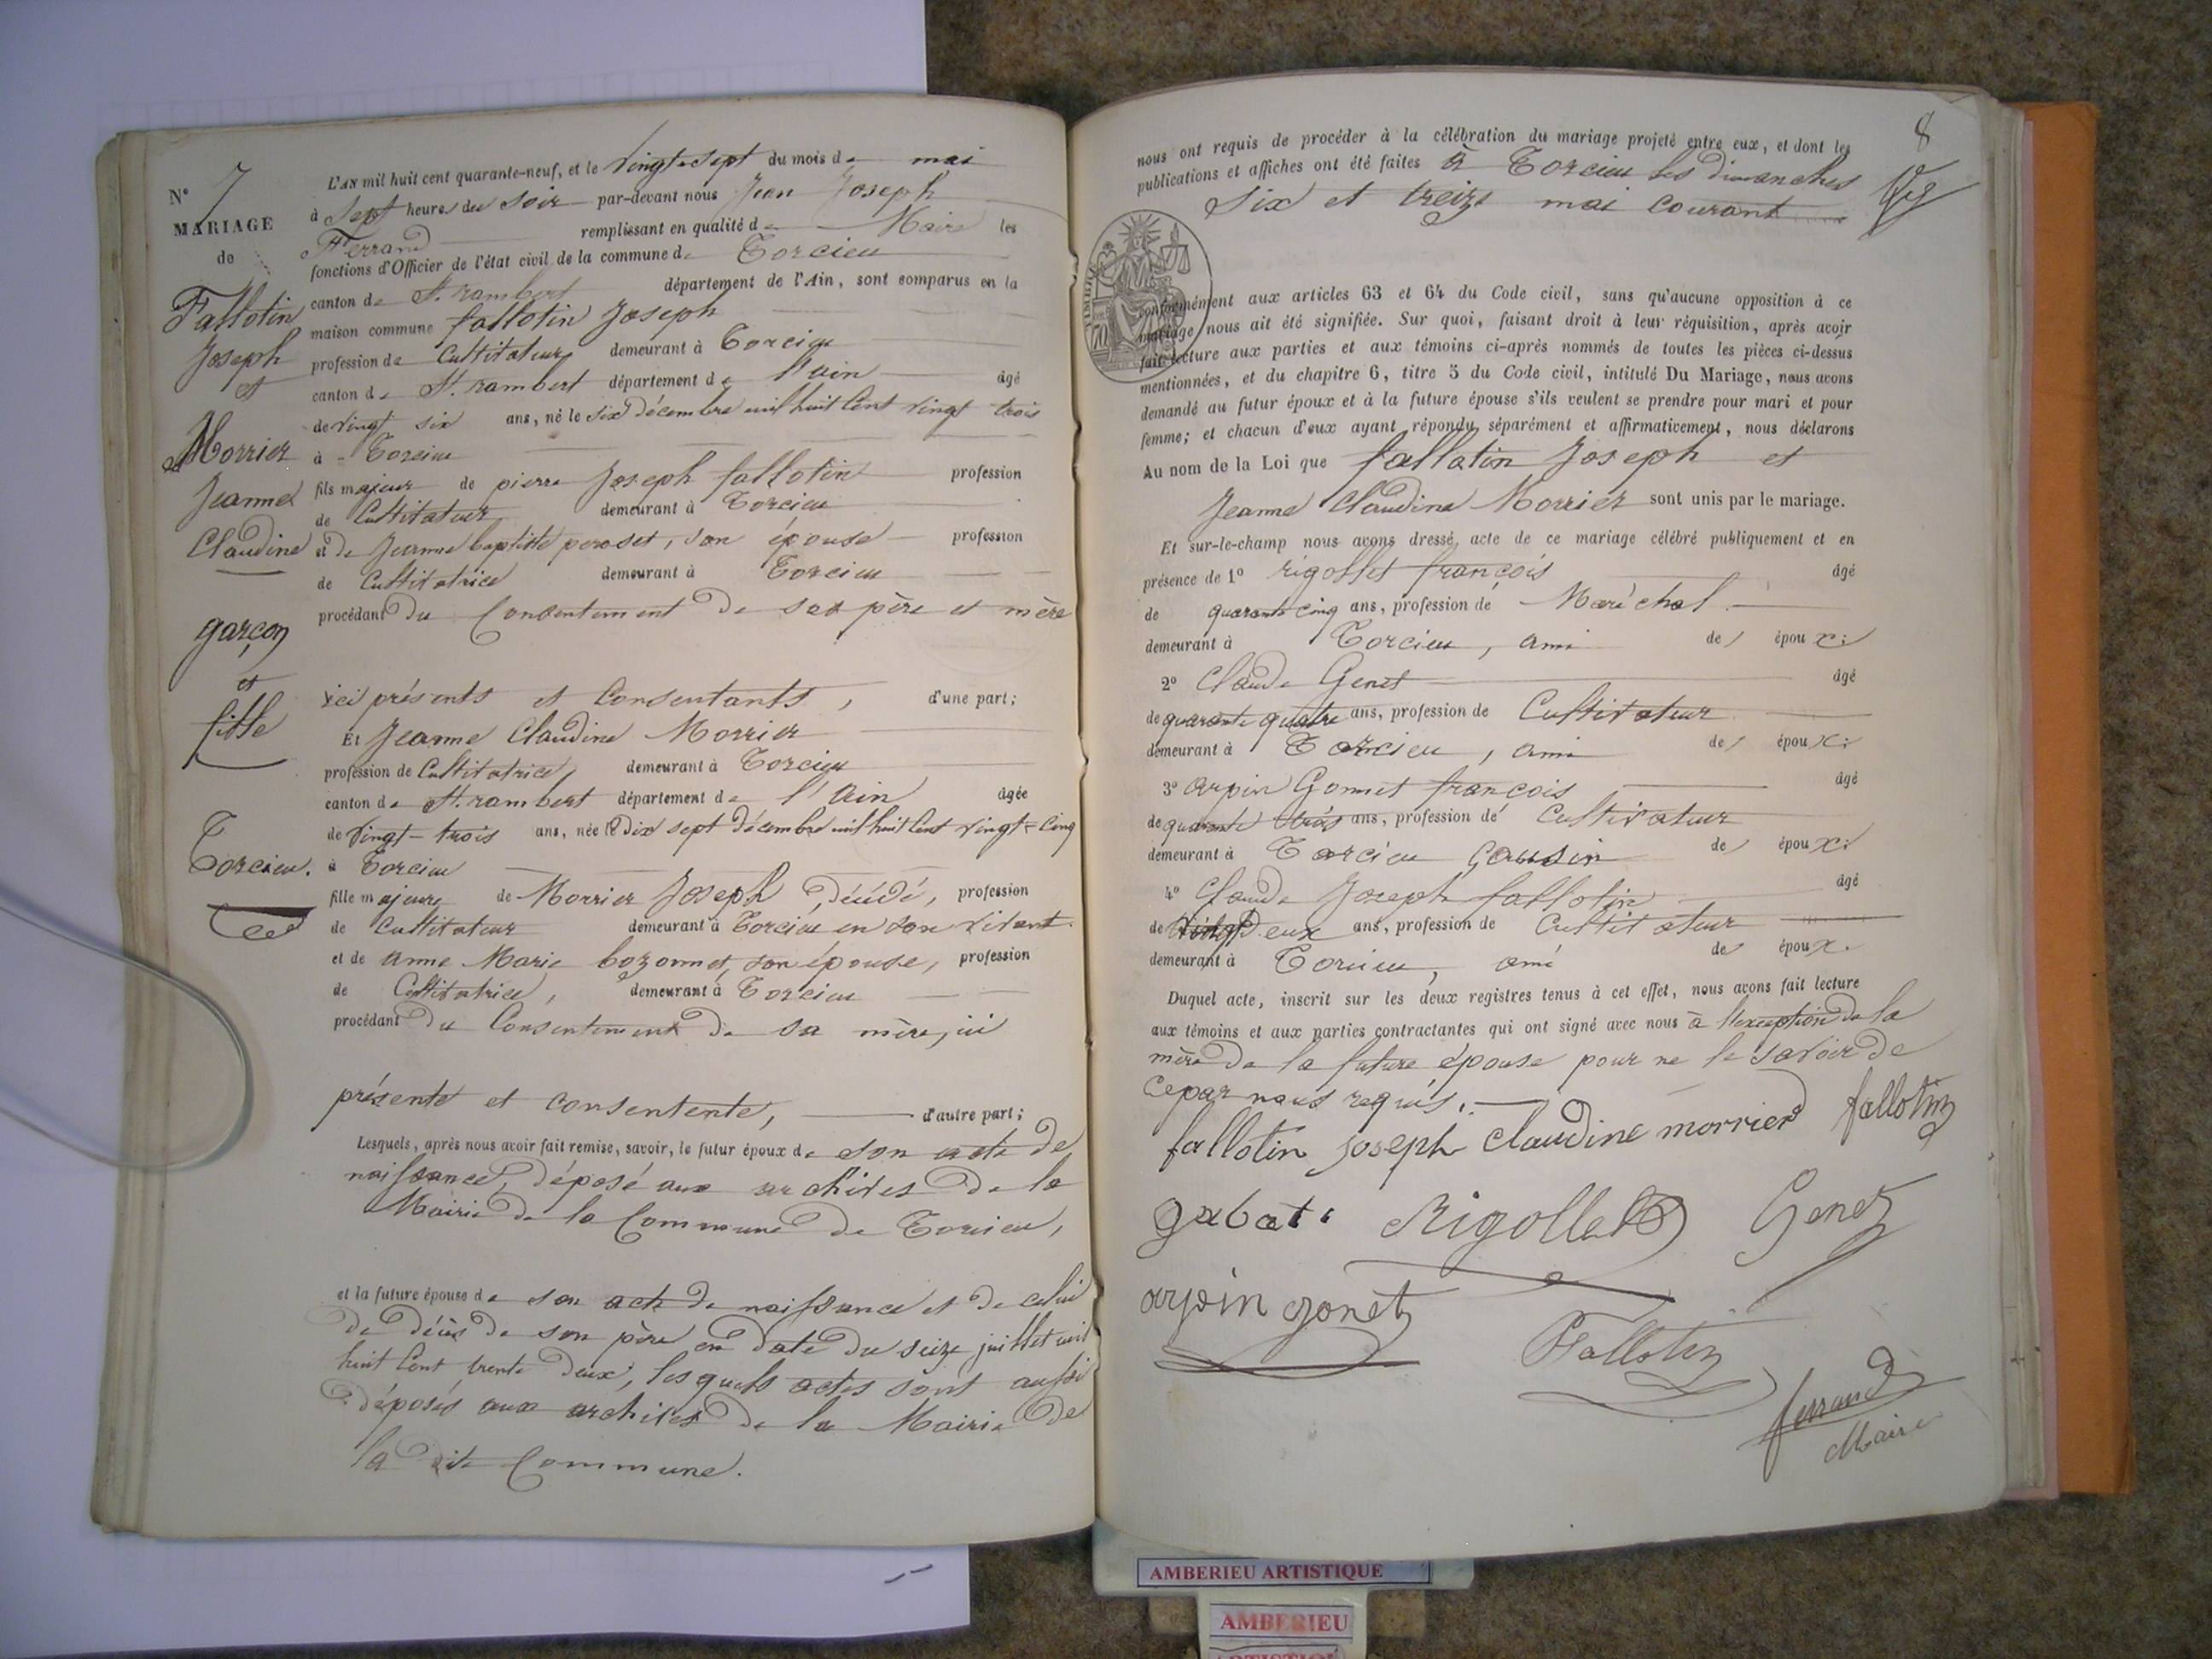 N° 7
MARIAGE
de
Fallotin
Joseph
et
Morrier
Jeanne
Claudine
garçon
et
fille
Torcieu.
L'AN mil huit cent quarante-neuf, et le vingt-sept du mois de mai
à sept heures du soir par-devant nous Jean Joseph
Ferrand remplissant en qualité de Maire les
fonctions d'Officier de l'état civil de la commune de Torcieu
canton de St. rambert département de l'Ain, sont comparus en la
maison commune fallotin Joseph
profession de Cultivateur demeurant à Torcieu
canton de St. rambert département de l'ain âgé
de vingt six ans, né le six décembre mil huit Cent vingt trois
à Torcieu
fils majeur de pierre Joseph fallotin profession
de Cultivateur demeurant à Torcieu
et de Jeanne baptiste peroset, son épouse profession
de Cultivatrice demeurant à Torcieu
procédant du Consentement de ses père et mère
ici présents et Consentants, d'une part;
Et Jeanne Claudine Morrier
profession de Cultivatrice, demeurant à Torcieu
canton de St. rambert département de l'ain âgée
de vingt-trois ans, née le dix sept décembre mil huit Cent vingt-cinq
à Torcieu
fille majeure de Morrier Joseph, décédé, profession
de Cultivateur demeurant à Torcieu en son vivant.
et de anne Marie bozonnet, son épouse, profession
de Cultivatrice, demeurant à Torcieu
procédant du Consentement de sa mère, ici
présente et consentente, d'autre part;
Lesquels, après nous avoir fait remise, savoir, le futur époux de son acte de
naissance, déposé aux archives de la
Mairie de la Commune de Torcieu,
et la future épouse de son acte de naissance et de celui
de décès de son père en date du seize juillet mil
huit Cent trente deux, lesquels actes sont aussi
déposés aux archives de la Mairie de
la dite Commune.
8
nous ont requis de procéder à la célébration du mariage projeté entre eux, et dont les
publications et affiches ont été faites à Torcieu les dimanches
six et treize mai courant
TIMBRE
conformément aux articles 63 et 64 du Code civil, sans qu'aucune opposition à ce
mariage nous ait été signifiée. Sur quoi, faisant droit à leur réquisition, après avoir
fait lecture aux parties et aux témoins ci-après nommés de toutes les pièces ci-dessus
mentionnées, et du chapitre 6, titre 5 du Code civil, intitulé Du Mariage, nous avons
demandé au futur époux et à la future épouse s'ils veulent se prendre pour mari et pour
femme; et chacun d'eux ayant répondu séparément et affirmativement, nous déclarons
Au nom de la Loi que fallotin Joseph et
Jeanne Claudine Morrier sont unis par le mariage.
Et sur-le-champ nous avons dressé acte de ce mariage célébré publiquement et en
présence de 1° rigollet françois âgé
de quarante cinq ans, profession de Maréchal
demeurant à Torcieu, ami des époux.
2° Claude Genet âgé
de quarante quatre ans, profession de Cultivateur
demeurant à Torcieu, ami des époux.
3° arpin Gonnet françois âgé
de quarante trois ans, profession de Cultivateur
demeurant à Torcieu Cousin des époux.
4° Claude Joseph fallotin âgé
de deux ans, profession de Cultivateur
demeurant à Torcieu, ami des époux.
Duquel acte, inscrit sur les deux registres tenus à cet effet, nous avons fait lecture
aux témoins et aux parties contractantes qui ont signé avec nous à l'exception de la
mère de la future épouse pour ne le savoir de
ce par nous requis.
fallotin joseph claudine morrier fallotin
gabat Rigollet Genet
arpin gonet
Fallotin
ferrand
Maire
AMBERIEU ARTISTIQUE
AMBERIEU
ARTISTIQUE